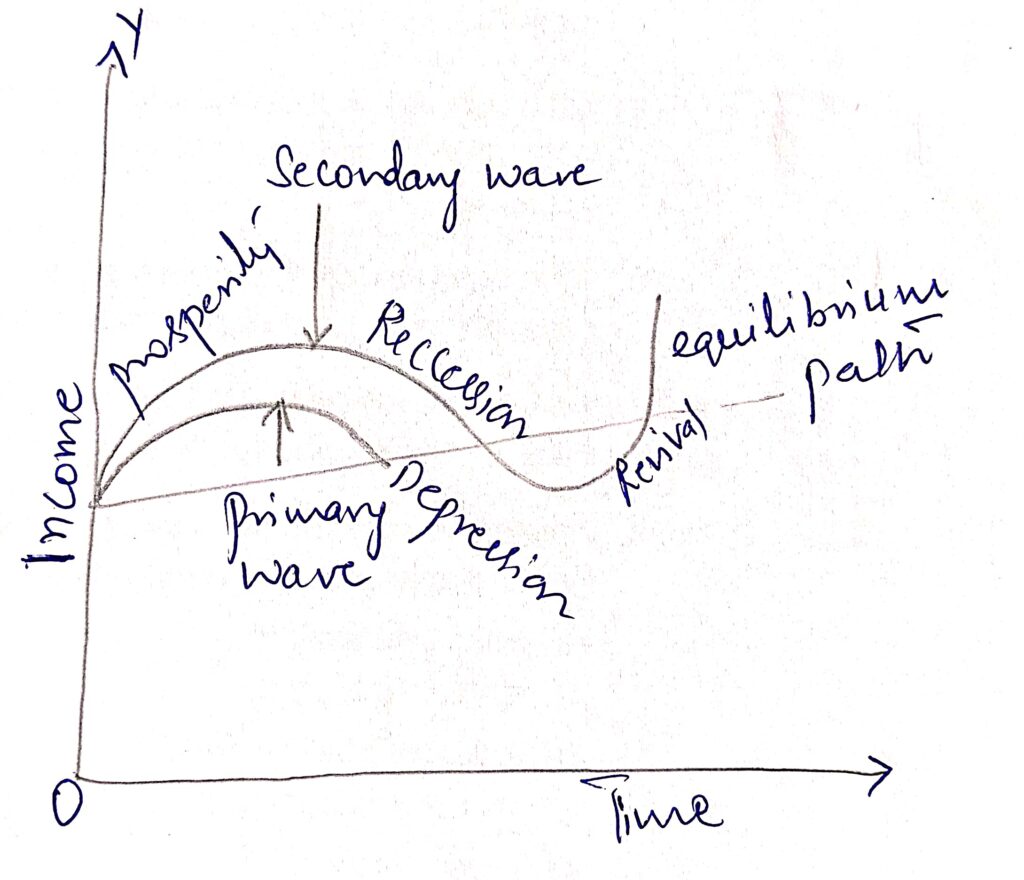 Y
Secondary wave
prosperity
Reccession
equilibrium
path
Income
Revival
Primary
wave
Depression
O
Time